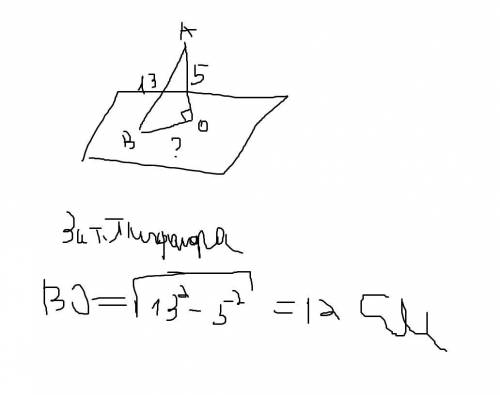 A
13 5
B O
?
За т. Піфагора
BO = √13² - 5² = 12 см